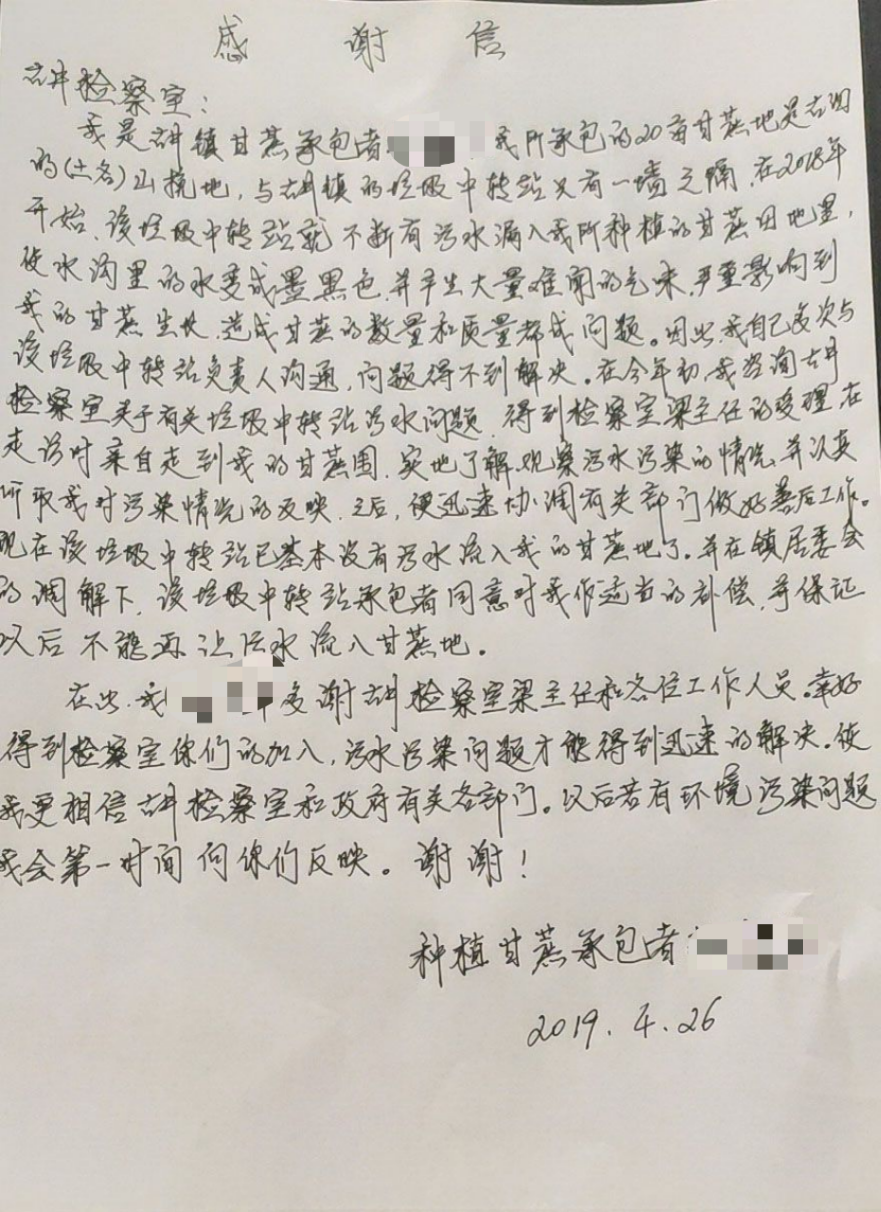 感谢信
古井检察室:
我是古井镇甘蔗承包者 我所承包的20亩甘蔗地是古泗
的(土名)山梳地,与古井镇的垃圾中转站只有一墙之隔,在2018年
开始,该垃圾中转站就不断有污水漏入我所种植的甘蔗田地里,
使水沟里的水变成墨黑色,并产生大量难闻的气味,严重影响到
我的甘蔗生长,造成甘蔗的数量和质量都成问题。因此,我自己多次与
该垃圾中转站负责人沟通,问题得不到解决。在今年初,我咨询古井
检察室关于有关垃圾中转站污水问题,得到检察室梁主任的受理,在
走访时亲自走到我的甘蔗围,实地了解、观察污水污染的情况,并认真
听取我对污染情况的反映,之后,便迅速协调有关部门做好善后工作。
现在该垃圾中转站已基本没有污水流入我的甘蔗地了。并在镇居委会
的调解下,该垃圾中转站承包者同意对我作适当的补偿,并保证
以后不能再让污水流入甘蔗地。
在此,我 多谢古井检察室梁主任和各位工作人员。幸好
得到检察室你们的加入,污水污染问题才能得到迅速的解决。使
我更相信古井检察室和政府有关各部门。以后若有环境污染问题
我会第一时间向你们反映。谢谢!
种植甘蔗承包者
2019.4.26